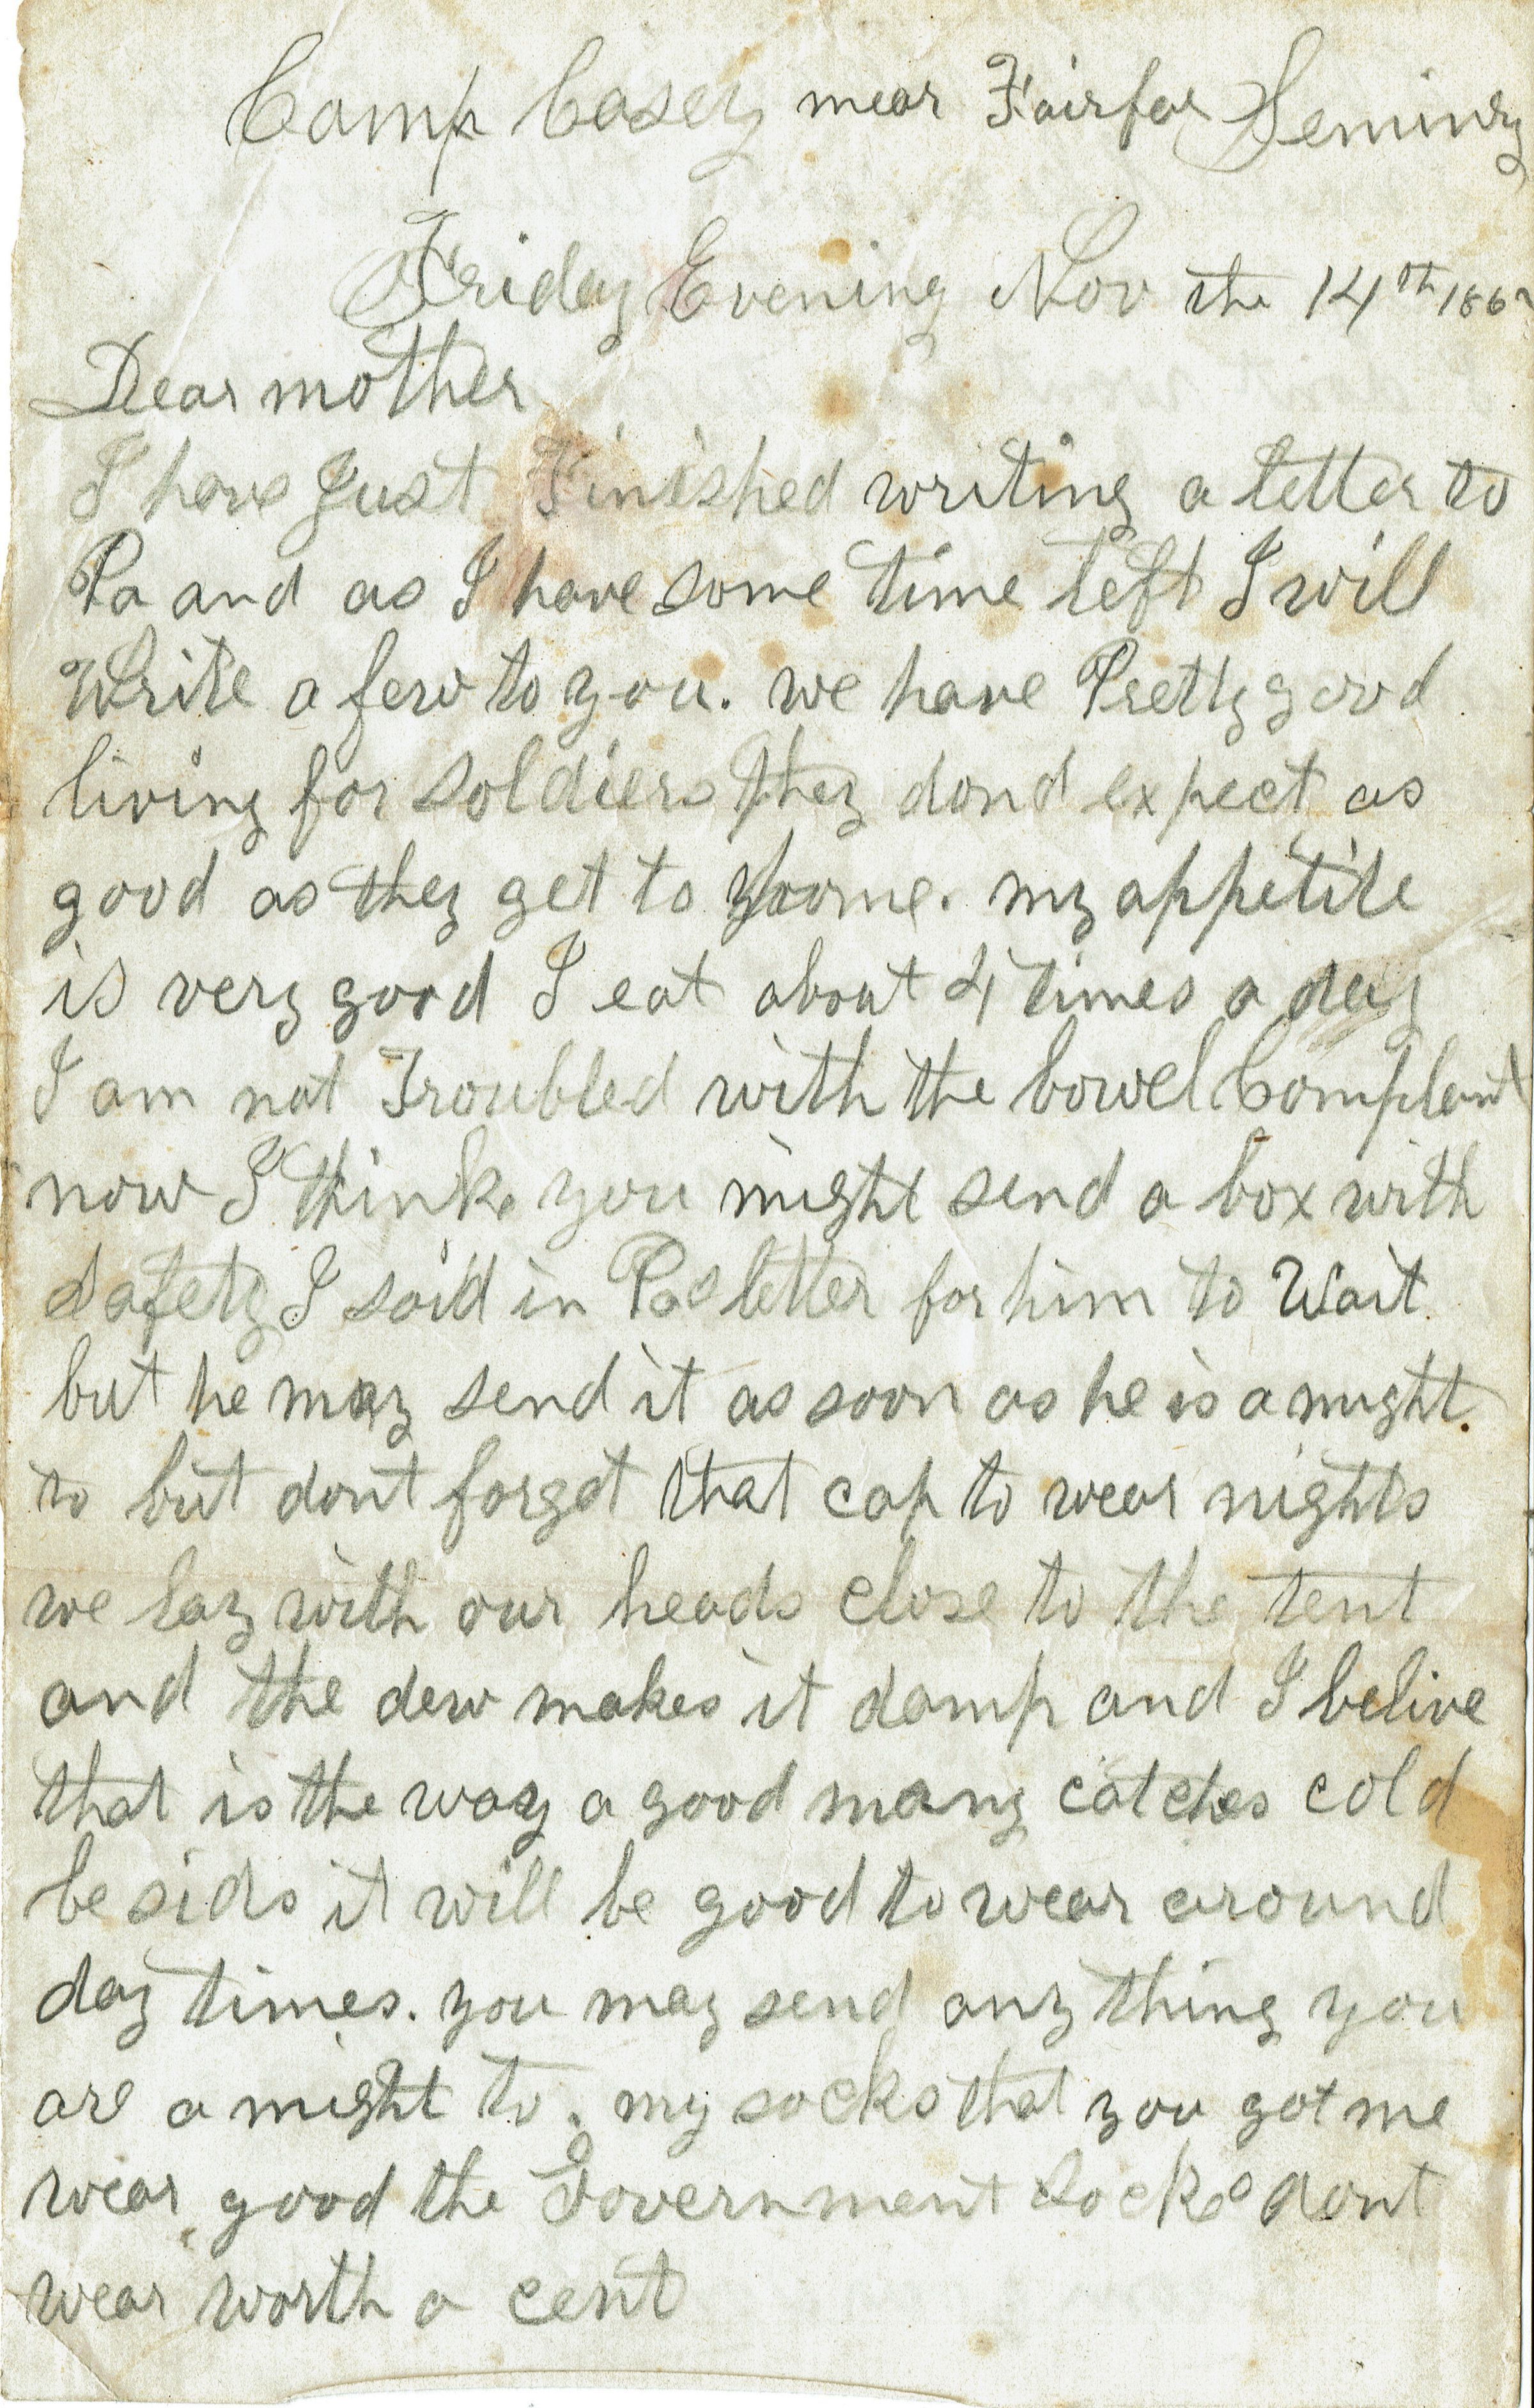 Camp Casey near Fairfax Seminry
Friday Evening Nov the 14th 186
Dear mother
I have Just Finished writing a letter to
Pa and as I have some time left I will
Write a few to you. we have Pretty good
living for soldiers they dond expect as
good as they get to home. my appetite
is very good I eat about 4 times a day
I am not Troubled with the bowel Complaint
now I think you might send a box with
safety I said in Pas letter for him to Wait
but he may send it as soon as he is a might
to but dont forget that cap to wear nights
we lay with our heads close to the tent
and the dew makes it damp and I belive
that is the way a good many catches cold
besids it will be good to wear around
day times. you may send any thing you
are a might to. my socks that you got me
wear good the Government socks dont
wear worth a cent